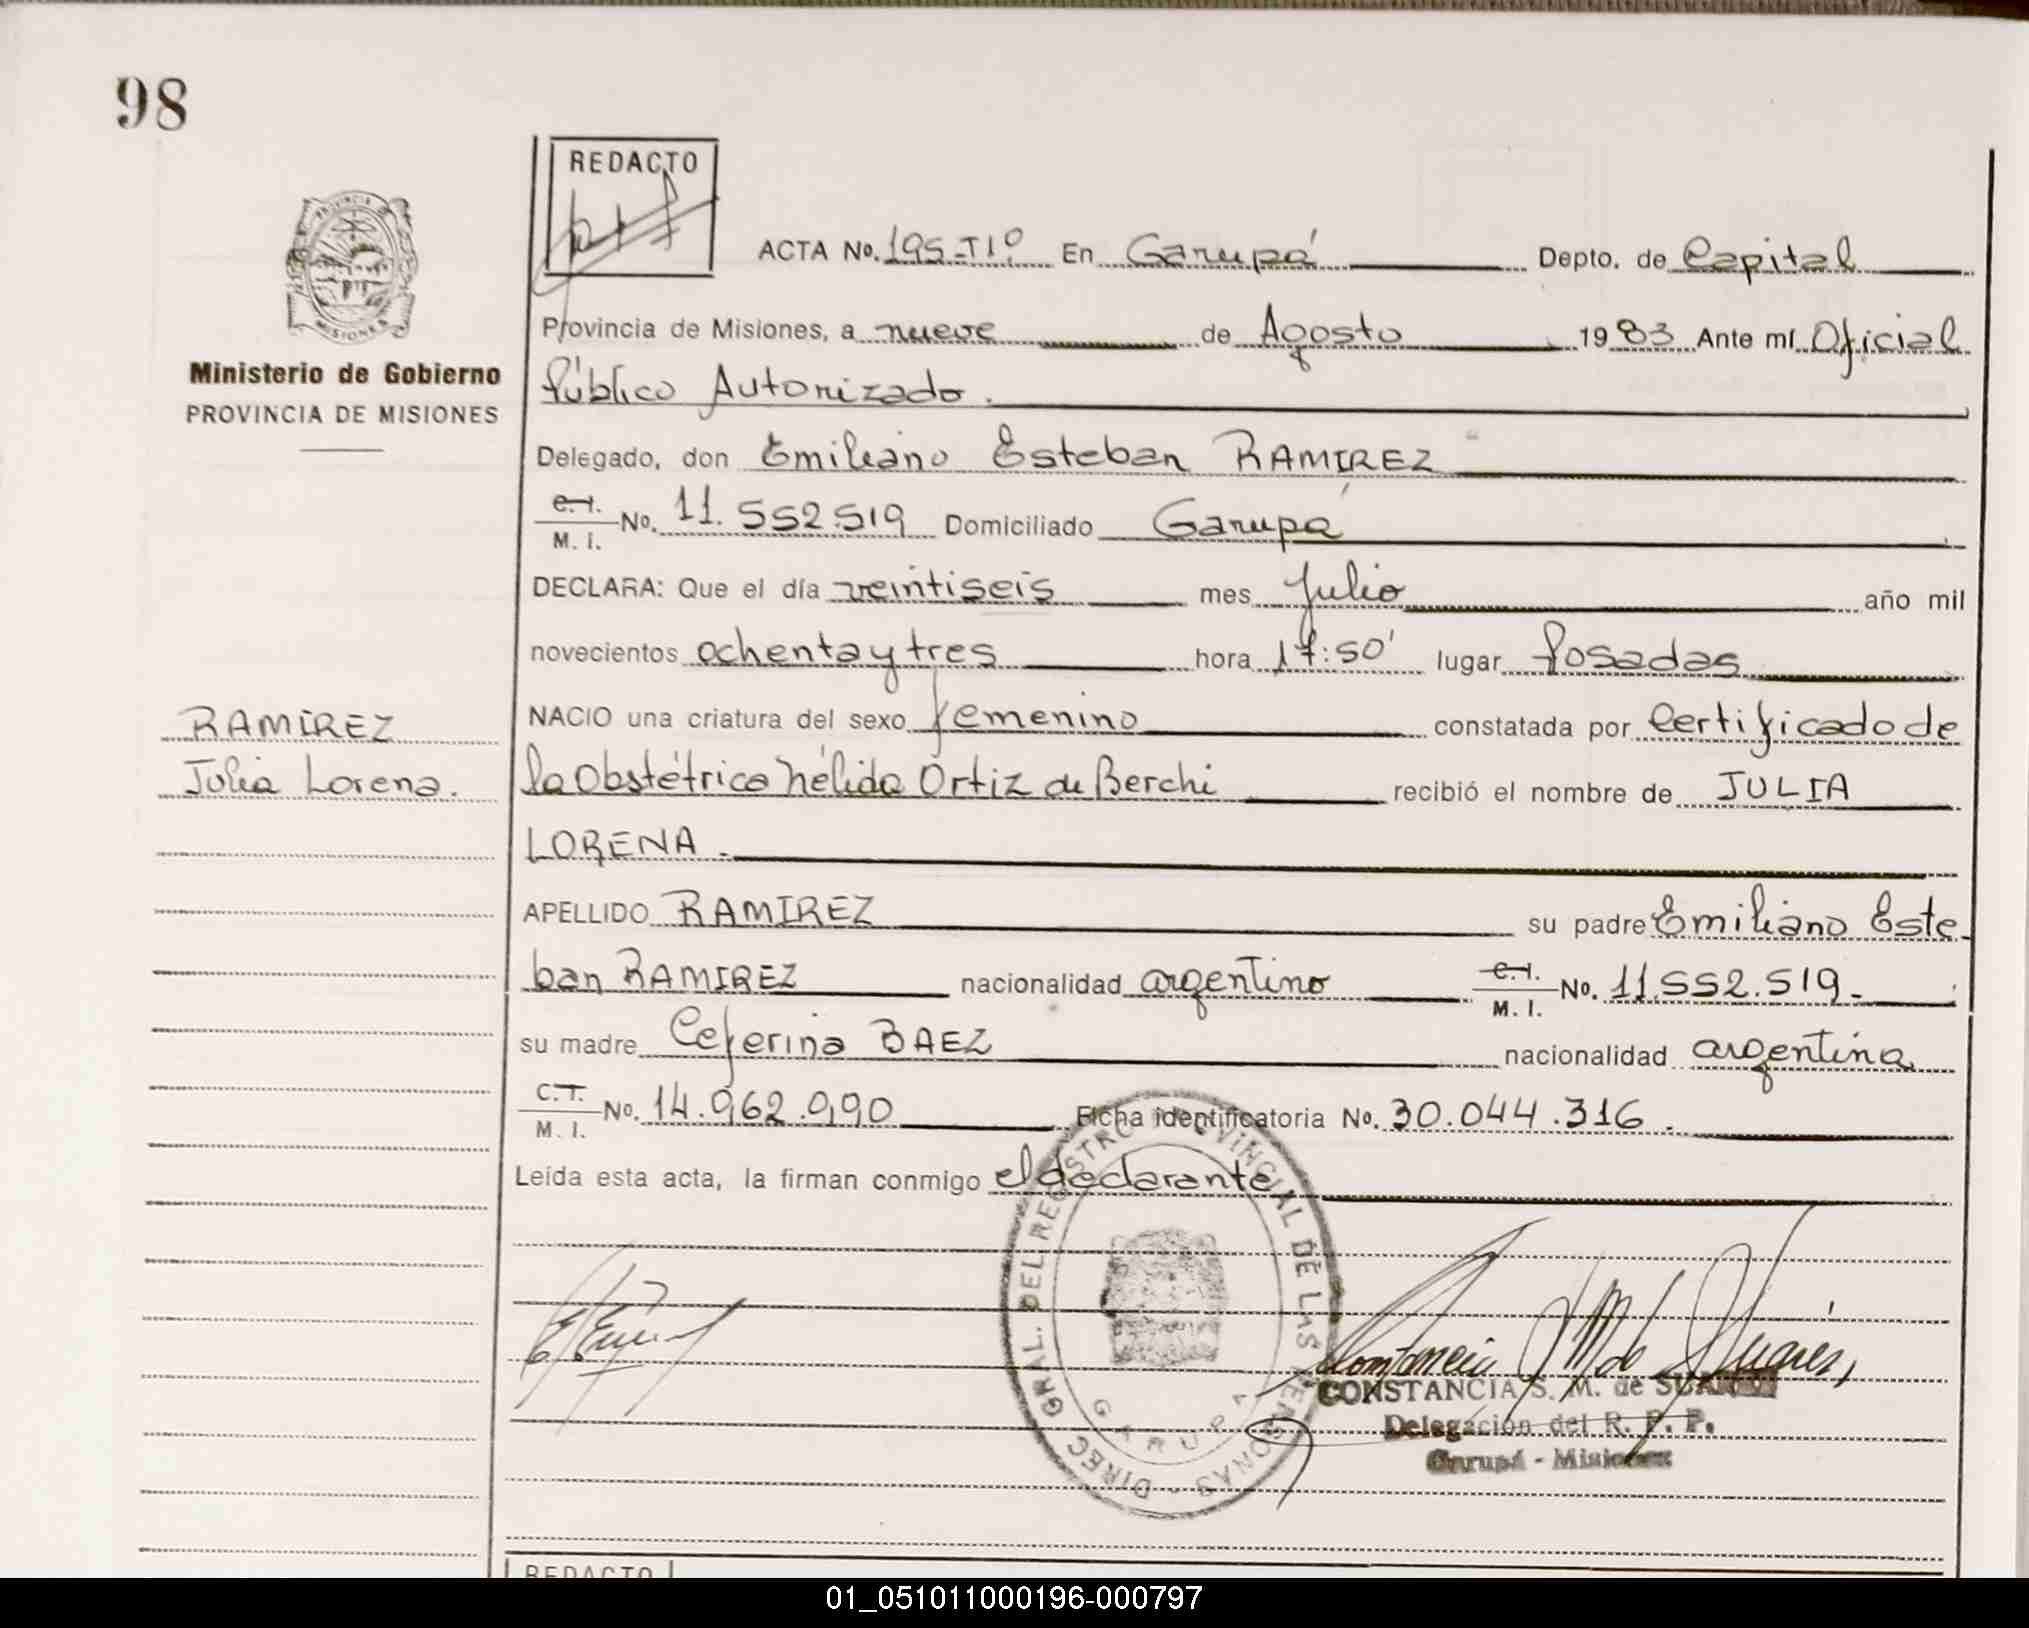 98
REDACTO
PROVINCIA DE
MISIONES
Ministerio de Gobierno
PROVINCIA DE MISIONES
ACTA No. 195-TIº En Garupá Depto. de Capital
Provincia de Misiones, a nueve de Agosto 1983 Ante mí Oficial
Público Autorizado.
Delegado, don Emiliano Esteban RAMIREZ
C.I. M. I. No. 11.552.519 Domiciliado Garupá
DECLARA: Que el día veintiseis mes Julio año mil
novecientos ochenta y tres hora 17:50' lugar Posadas
NACIO una criatura del sexo femenino constatada por Certificado de
la Obstétrica Nélida Ortiz de Berchi recibió el nombre de JULIA
LORENA.
RAMÍREZ
Julia Lorena.
APELLIDO RAMIREZ su padre Emiliano Este
ban RAMIREZ nacionalidad argentino C.I. M. I. No. 11.552.519.
su madre Ceferina BAEZ nacionalidad argentina
C.I. M. I. No. 14.962.990 Ficha identificatoria No. 30.044.316.
Leída esta acta, la firman conmigo el declarante
DIREC GRAL. DEL REGISTRO PROVINCIAL DE LAS PERSONAS
GARUPA
Constancia S M de Suárez
CONSTANCIA S. M. de SUAREZ
Delegación del R. P. P.
Garupá - Misiones
REDACTO
01_051011000196-000797